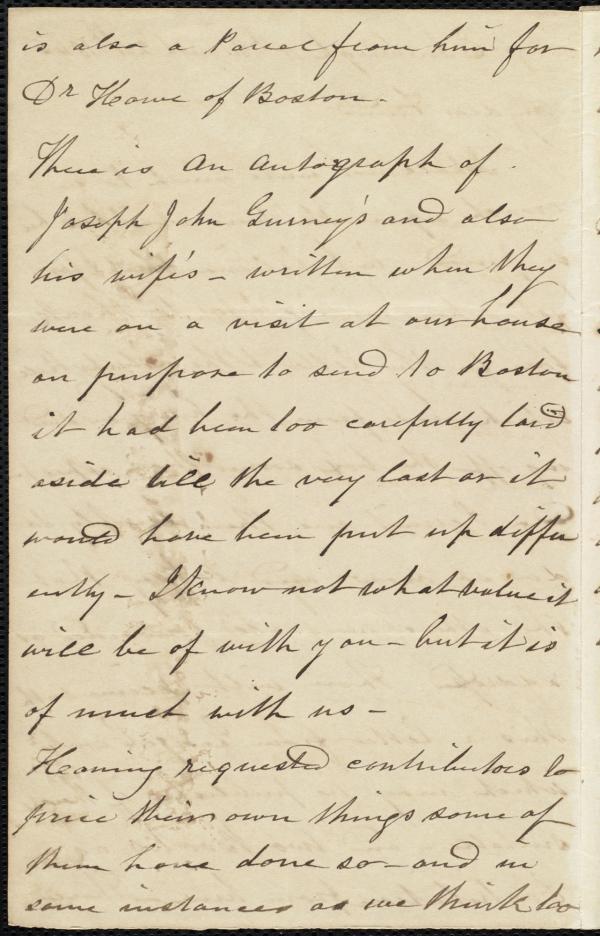 is also a Parcel from him for
Dr Howe of Boston.
There is an autograph of
Joseph John Gurney's and also
his wife's - written when they
were on a visit at our house
on purpose to send to Boston
it had been too carefully laid
aside till the very last or it
would have been put up differ
ently - I know not what value it
will be of with you - but it is
of much with us -
Having requested contributors to
price their own things some of
them have done so - and in
some instances as we think too